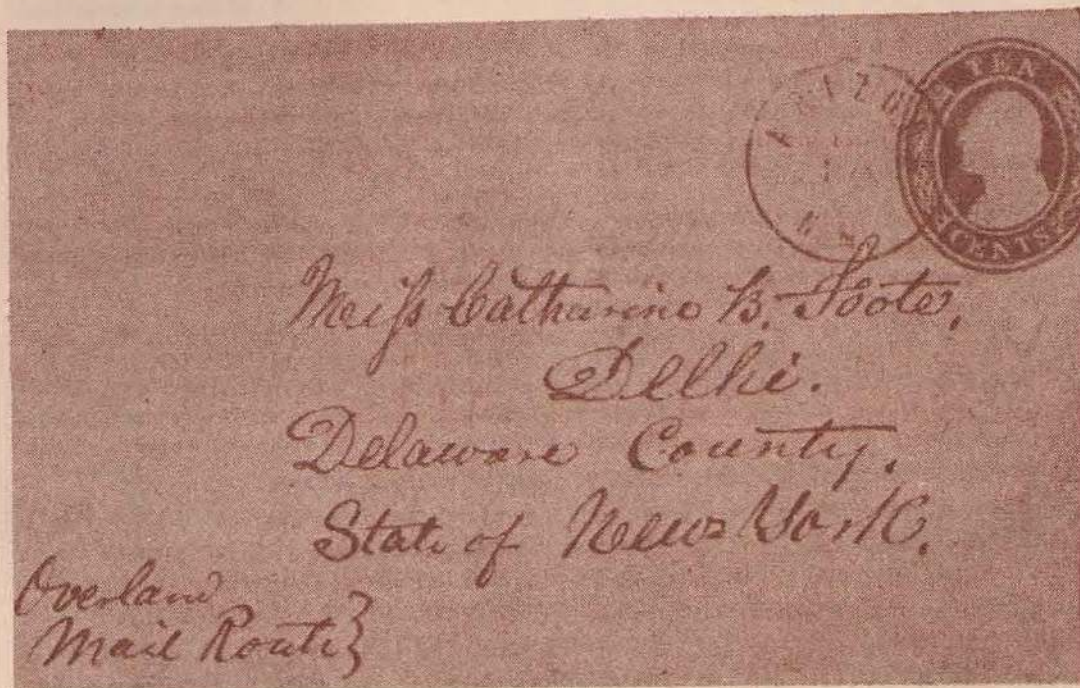 TEN
CENTS
ARIZO
Miss Catharine B. Foote,
Delhi.
Delaware County,
State of New York.
Overland
Mail Route}